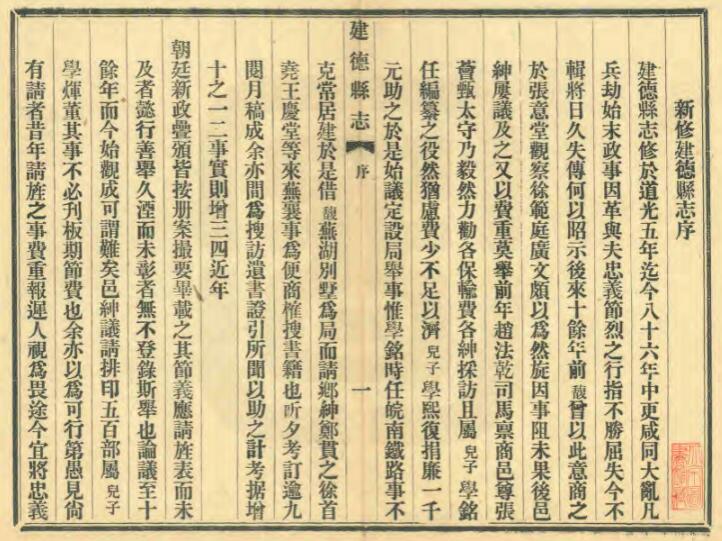 新修建德縣志序
建德縣志修於道光五年迄今八十六年中更咸同大亂凡
兵劫始末政事因革與夫忠義節烈之行指不勝屈失今不
輯將日久失傳何以昭示後來十餘年前馥曾以此意商之
於張意堂觀察徐範庭廣文頗以爲然旋因事阻未果後邑
紳屢議及之又以費重莫舉前年趙法乾司馬禀商邑尊張
薈甄太守乃毅然力勸各保輸費各紳採訪且屬兒子學銘
任編纂之役然猶慮費少不足以濟兒子學熙復捐廉一千
元助之於是始議定設局舉事惟學銘時任皖南鐵路事不
建德縣志
序
一
克常居建於是借馥蕪湖別墅爲局而請鄉紳鄭貫之徐首
堯王慶堂等來蕪襄事爲便商榷搜書籍也昕夕考訂逾九
閱月稿成余亦間爲搜訪遺書證引所聞以助之計考据增
十之一二事實則增三四近年
朝廷新政疊頒皆按册案撮要畢載之其節義應請旌表而未
及者懿行善舉久湮而未彰者無不登錄斯舉也論議至十
餘年而今始觀成可謂難矣邑紳議請排印五百部屬兒子
學煇董其事不必刋板期節費也余亦以爲可行第愚見尙
有請者昔年請旌之事費重報遲人視爲畏途今宜將忠義